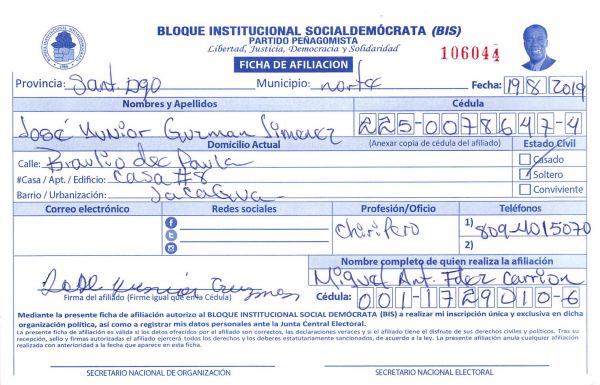 BLOQUE INSTITUCIONAL SOCIALDEMÓCRATA (BIS)
PARTIDO PEÑAGOMISTA
Libertad, Justicia, Democracia y Solidaridad
106044
FICHA DE AFILIACION
Provincia: Sant. Dgo Municipio: norte Fecha: 19/8/2019
Nombres y Apellidos Cédula
José Yunior Guzman Jimenez 225-0078647-4
Domicilio Actual (Anexar copia de cédula del afiliado) Estado Civil
Calle: Braulio de Paula Casado
#Casa / Apt. / Edificio: Casa #8 Soltero
Barrio / Urbanización: Jacagua Conviviente
Correo electrónico Redes sociales Profesión/Oficio Teléfonos
Chiripero 1) 809-4015070
2)
Nombre completo de quien realiza la afiliación
José Yunior Guzman Miguel Ant. Fdez Carrion
Firma del afiliado (Firme igual que en la Cédula) Cédula: 001-1729010-6
Mediante la presente ficha de afiliación autorizo al BLOQUE INSTITUCIONAL SOCIAL DEMÓCRATA (BIS) a realizar mi inscripción única y exclusiva en dicha
organización política, así como a registrar mis datos personales ante la Junta Central Electoral.
La presente ficha de afiliación es válida si los datos ofrecidos por el afiliado son correctos, las declaraciones veraces y si el afiliado tiene el disfrute de sus derechos civiles y políticos. Tras su
recepción, sello y firmas autorizadas el afiliado ejercerá todos los derechos y los deberes estatutariamente sancionados, de acuerdo a la ley. La presente afiliación anula cualquier afiliación
realizada con anterioridad a la fecha que aparece en esta ficha.
SECRETARIO NACIONAL DE ORGANIZACIÓN SECRETARIO NACIONAL ELECTORAL